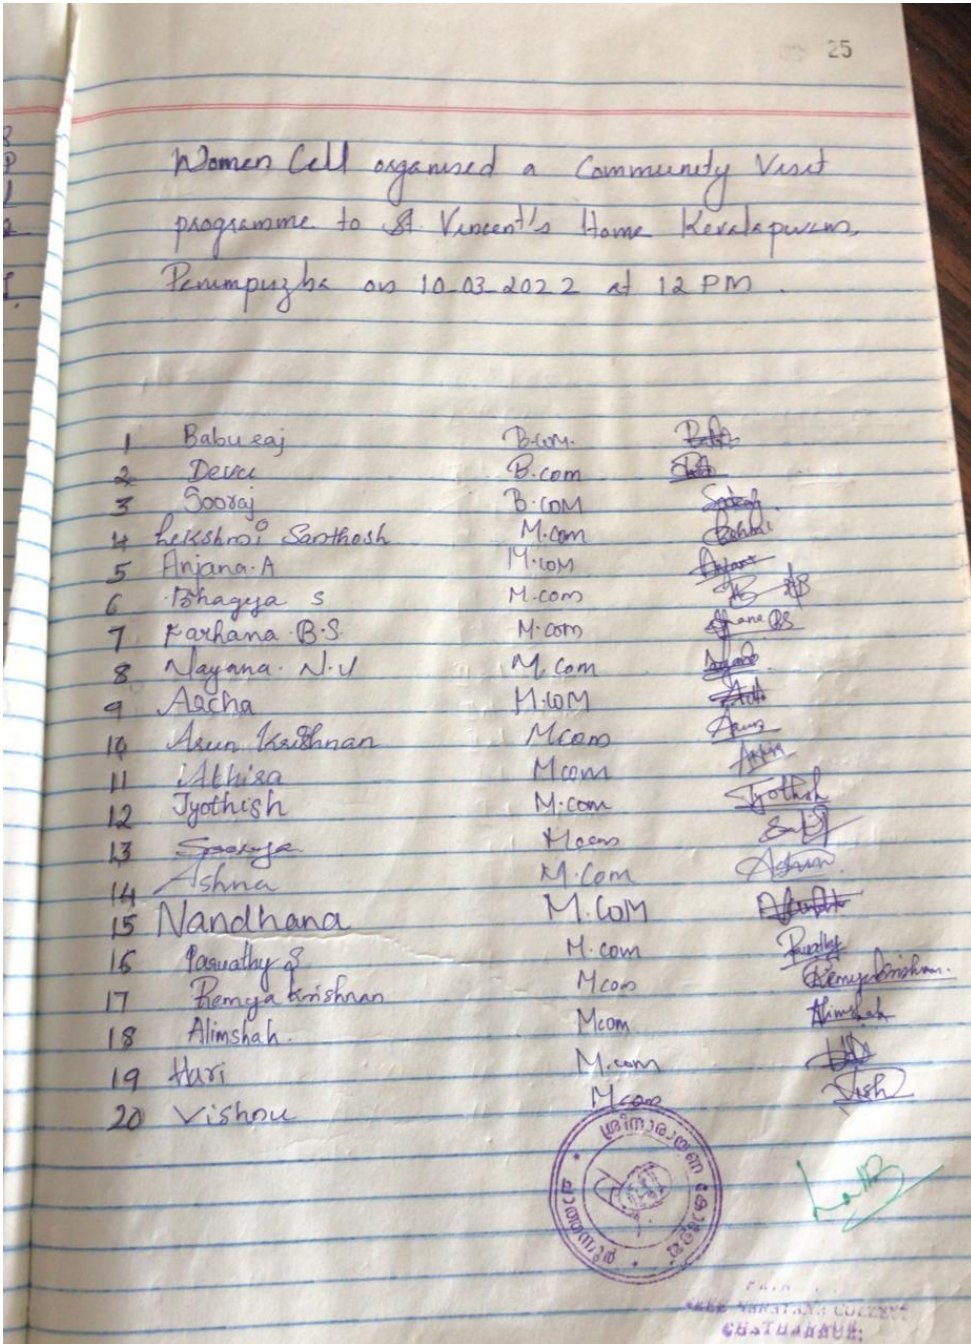 25
Women Cell organised a Community Visit
programme to St. Vincent's Home Keralapuram,
Perumpuzha on 10-03-2022 at 12 PM.
1 Baburaj B.com.
2 Devu B.com
3 Sooraj B.COM
4 Lekshmi Santhosh M.com
5 Anjana.A M.COM Anjana
6 Bhagya S M.com
7 Farhana.B.S. M.com
8 Nayana.N.V M.Com
9 Aacha M.COM
10 Arun Krishnan Mcom
11 Athira Mcom
12 Jyothish M.com Jyothish
13 Mcom
14 Ashna M.Com
15 Nandhana M.COM
16 Parvathy S M.com Parvathy
17 Remya Krishnan Mcom Remya Krishnan.
18 Alimshah. Mcom Alimshah
19 Hari M.com
20 Vishnu Mcom
ശ്രീനാരായണ കോളേജ്
ചാത്തന്നൂർ
SREE NARAYANA COLLEGE
CHATHANNUR